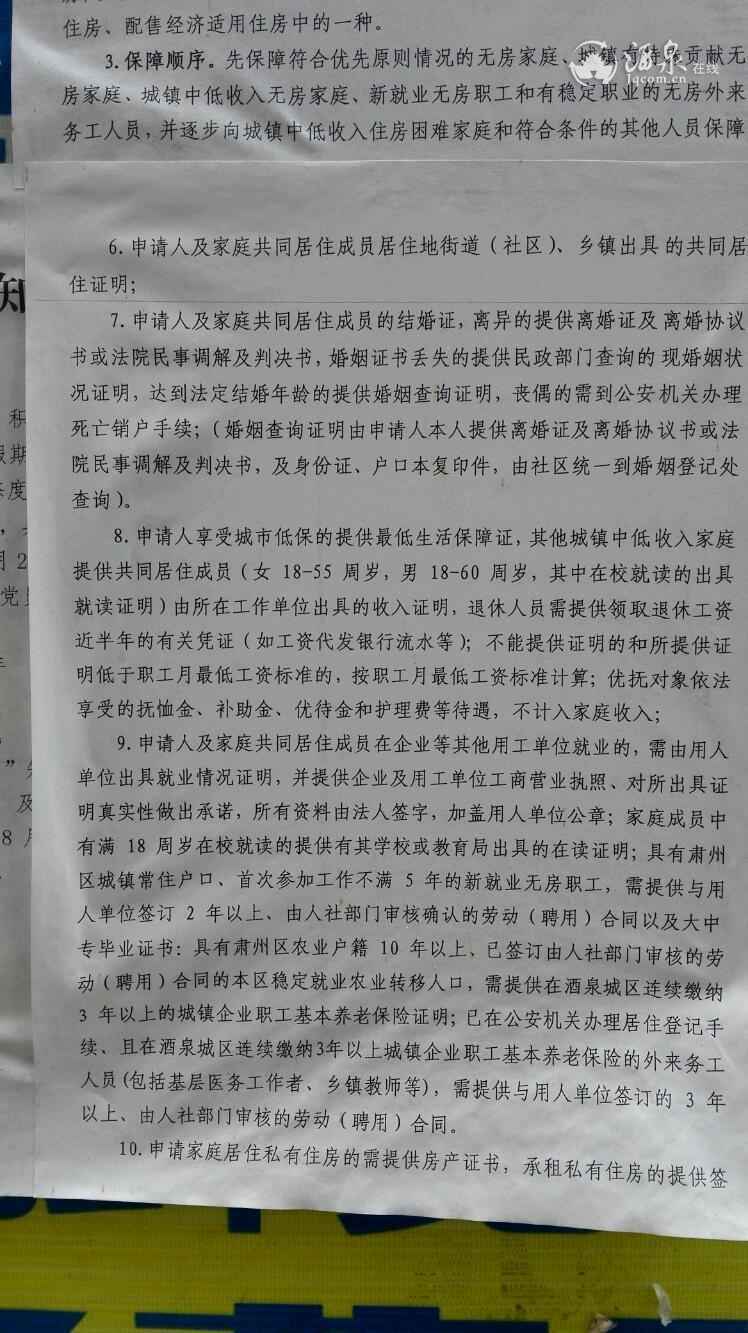 住房、配售经济适用住房中的一种。
3.保障顺序。先保障符合优先原则情况的无房家庭、城镇有特殊贡献无
房家庭、城镇中低收入无房家庭、新就业无房职工和有稳定职业的无房外来
务工人员，并逐步向城镇中低收入住房困难家庭和符合条件的其他人员保障
酒泉在线
Jqcom.cn
6.申请人及家庭共同居住成员居住地街道（社区）、乡镇出具的共同居
住证明；
7.申请人及家庭共同居住成员的结婚证，离异的提供离婚证及离婚协议
书或法院民事调解及判决书，婚姻证书丢失的提供民政部门查询的现婚姻状
况证明，达到法定结婚年龄的提供婚姻查询证明，丧偶的需到公安机关办理
死亡销户手续；（婚姻查询证明由申请人本人提供离婚证及离婚协议书或法
院民事调解及判决书，及身份证、户口本复印件，由社区统一到婚姻登记处
查询）。
8.申请人享受城市低保的提供最低生活保障证，其他城镇中低收入家庭
提供共同居住成员（女 18-55 周岁，男 18-60 周岁，其中在校就读的出具
就读证明）由所在工作单位出具的收入证明，退休人员需提供领取退休工资
近半年的有关凭证（如工资代发银行流水等）；不能提供证明的和所提供证
明低于职工月最低工资标准的，按职工月最低工资标准计算；优抚对象依法
享受的抚恤金、补助金、优待金和护理费等待遇，不计入家庭收入；
9.申请人及家庭共同居住成员在企业等其他用工单位就业的，需由用人
单位出具就业情况证明，并提供企业及用工单位工商营业执照、对所出具证
明真实性做出承诺，所有资料由法人签字，加盖用人单位公章；家庭成员中
有满 18 周岁在校就读的提供有其学校或教育局出具的在读证明；具有肃州
区城镇常住户口、首次参加工作不满 5 年的新就业无房职工，需提供与用
人单位签订 2 年以上、由人社部门审核确认的劳动（聘用）合同以及大中
专毕业证书：具有肃州区农业户籍 10 年以上、已签订由人社部门审核的劳
动（聘用）合同的本区稳定就业农业转移人口，需提供在酒泉城区连续缴纳
3 年以上的城镇企业职工基本养老保险证明；已在公安机关办理居住登记手
续、且在酒泉城区连续缴纳3年以上城镇企业职工基本养老保险的外来务工
人员(包括基层医务工作者、乡镇教师等)，需提供与用人单位签订的 3 年
以上、由人社部门审核的劳动（聘用）合同。
10.申请家庭居住私有住房的需提供房产证书，承租私有住房的提供签